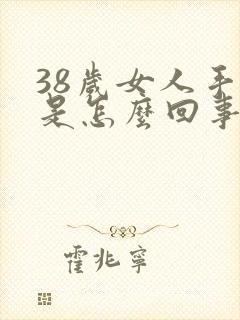 38歲女人手
是怎麼回事
霍兆寧